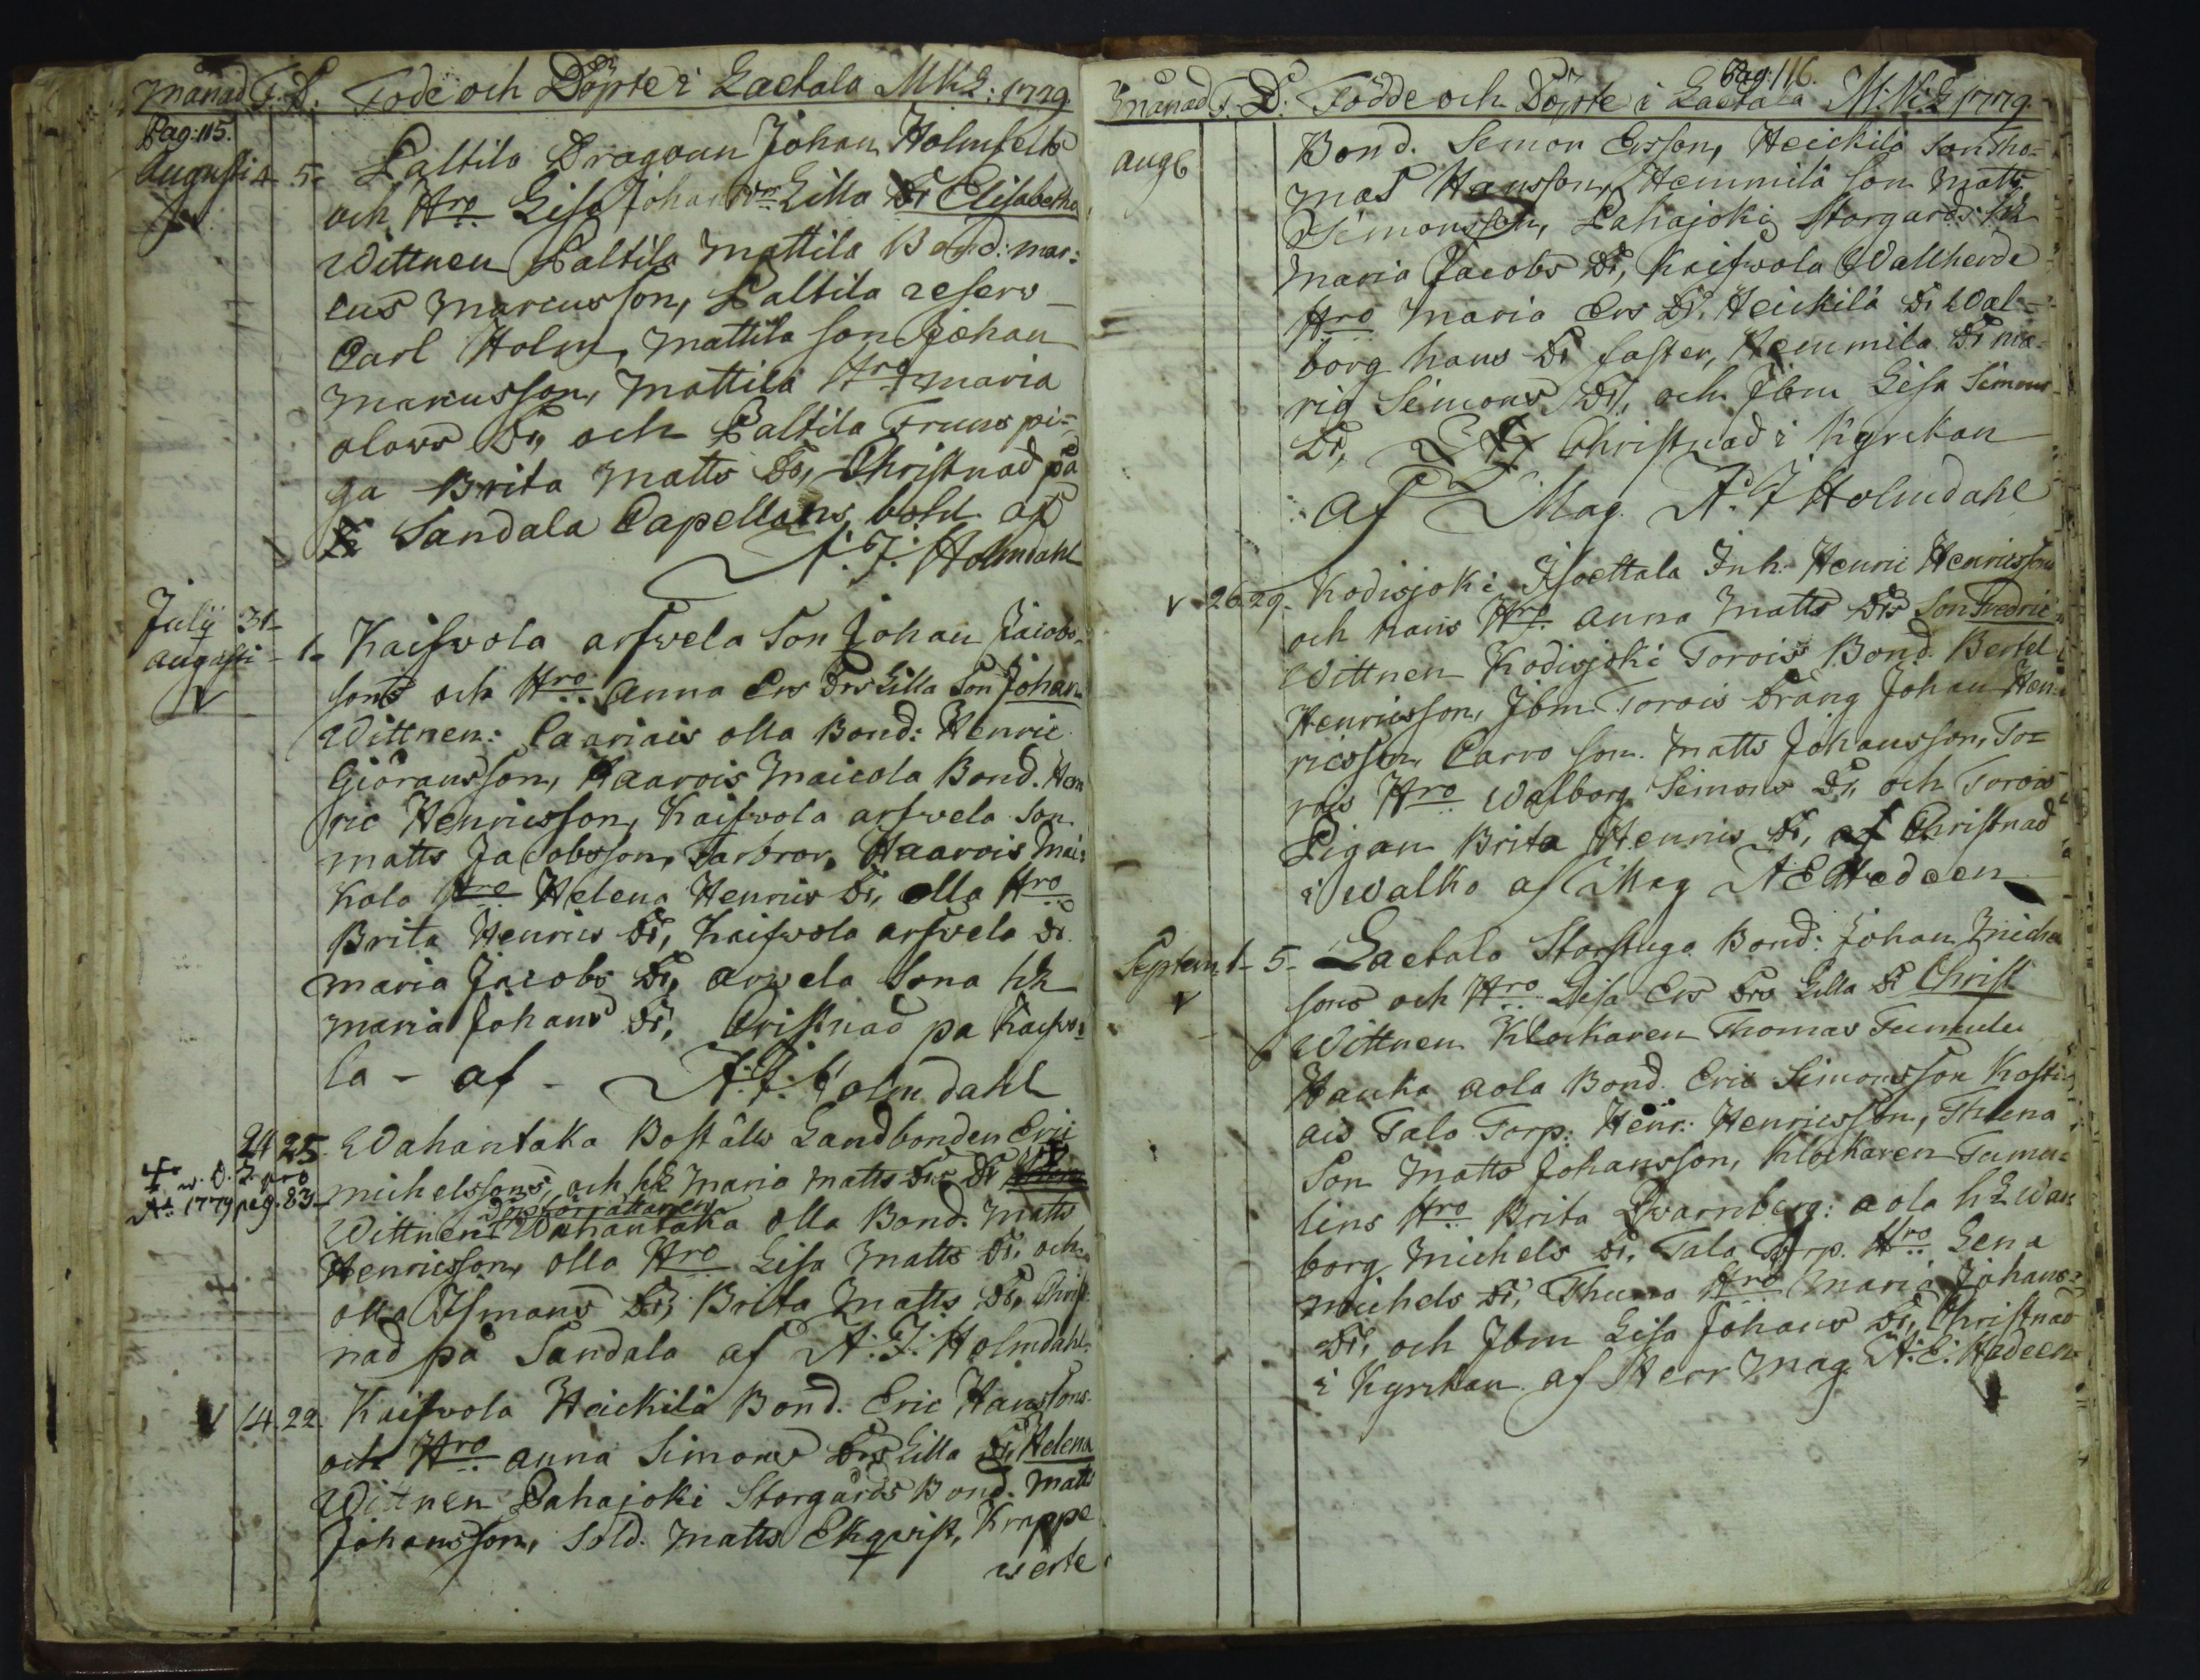 Månad F. D. Föde och Döpte i Laetala M K L: 1779
Pag: 115.
Augusti 4. 5. Paltila Dragoun Johan Holmfelts
och Hro Lisa Johans Drs Lilla Dr Elisabetha
Wittnen Paltila Mattila Bond: Mar=
cus Marcusson, Paltila reserv
Carl Holm, Mattila son Johan
Marcusson, Mattila Hro Maria
olows Dr, och Paltila Truns pi=
ga Brita Matts Dr, Christnad på
Sandala Capellans bohl af
A. J. Holmdahl
July 31
Augusti 1. Kaifvola arfvela Son Johan Jacobs-
sons och Hro Anna Ers Drs Lilla Son Johan
Wittnen: Caariais olla Bond: Henric
Giöransson, Haarois Maicola Bond. Hen
ric Henricsson, Kaifvola arfvela son
Matts Jacobsson, Farbror, Haarois Mai=
kola Hro Helena Henrics Dr, olla Hro
Brita Henrics Dr, Kaifvola arfvela Dr
Maria Jacobs Dr, arvela Sona hk
Maria Johans Dr, Cristnad pa Kaifvo=
la - af - A. J. Holmdahl
24 25. Wahantaka Boställs Landbonden Eric
w. D. L pro
Ao 1779 pag. 83
Michelssons, och hk Maria Matts Drs Dr
Dopförrättaren
Wittnen Wahantaka olla Bond. Matts
Henricsson, olla Hro Lisa Matts Dr, och
olla Ismans Dr, Brita Matts Dr, Christ=
nad på Sandala af A: J: Holmdahl.
V 14. 22. Kaifvola Heickilä Bond. Eric Hanssons
och Hro Anna Simons Drs Lilla Dr, Helena
Wittnen Pahajoki Storgårds Bond. Matts
Johansson, Sold. Matts Ekqvist, Krappe
werte
Pag: 116.
Månad F. D. Födde och Döpte i Laetala M: K: L 1779.
Aug
Bond. Semon Ersson, Heickilä son Tho=
mas Hansson, Hemmilä son Matts
Simonsson, Pahajoki Storgards hk
Maria Jacobs Dr, Kaifvola Wallherde
Hro Maria Ers Dr, Heickilä Dr Wal=
borg hans Dr faster, Hemmila Dr Ma=
ria Simons Dr, och Jbm Lisa Simons
Dr, Christnad i Kyrckan
af Mag A. J Holmdahl
V 26. 29. Kodisjoki Isoettala Inh. Henric Henricssons
och hans Hro Anna Matts Drs Son Fredric
Wittnen Kodisjoki Torois Bond. Bertel
Henricsson, Jbm Torois Dräng Johan Hen=
ricsson, Carvo son Matts Johansson, To=
rois Hro Walborg Simons Dr, och Torois
Pigan Brita Henrics Dr, Christnad
i Walko af Mag A E Hedeen
Septem 1. 5. Laetala Storstuga Bond: Johan Michel
V sons och Hro Lisa Ers Drs Lilla Dr Christ
Wittnen Klockaren Thomas Tumulin
Hauka aola Bond. Eric Simonsson Kosti=
ais Talo Torp: Henr: Henricsson, Thuna
Son Matts Johansson, Klockaren Tumu=
lins Hro Brita Qvarnberg: aola hk Wal
borg Michels Dr, Talo Torp. Hro Lena
Michels Dr, Thuna Hro Maria Johans=
Dr, och Jbm Lisa Johans Dr, Christnad
i Kyrckan af Herr Mag A: E: Hedeen